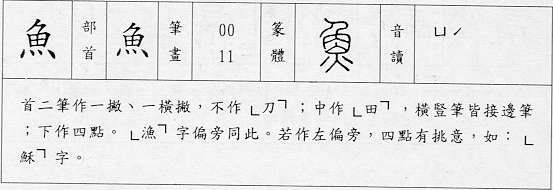 魚 部首 魚 筆畫 00 11 篆體 魚 音讀 ㄩˊ
首二筆作一撇、一橫撇,不作「刀」;中作「田」,橫豎筆皆接邊筆
;下作四點。「漁」字偏旁同此。若作左偏旁,四點有挑意,如:「
穌」字。